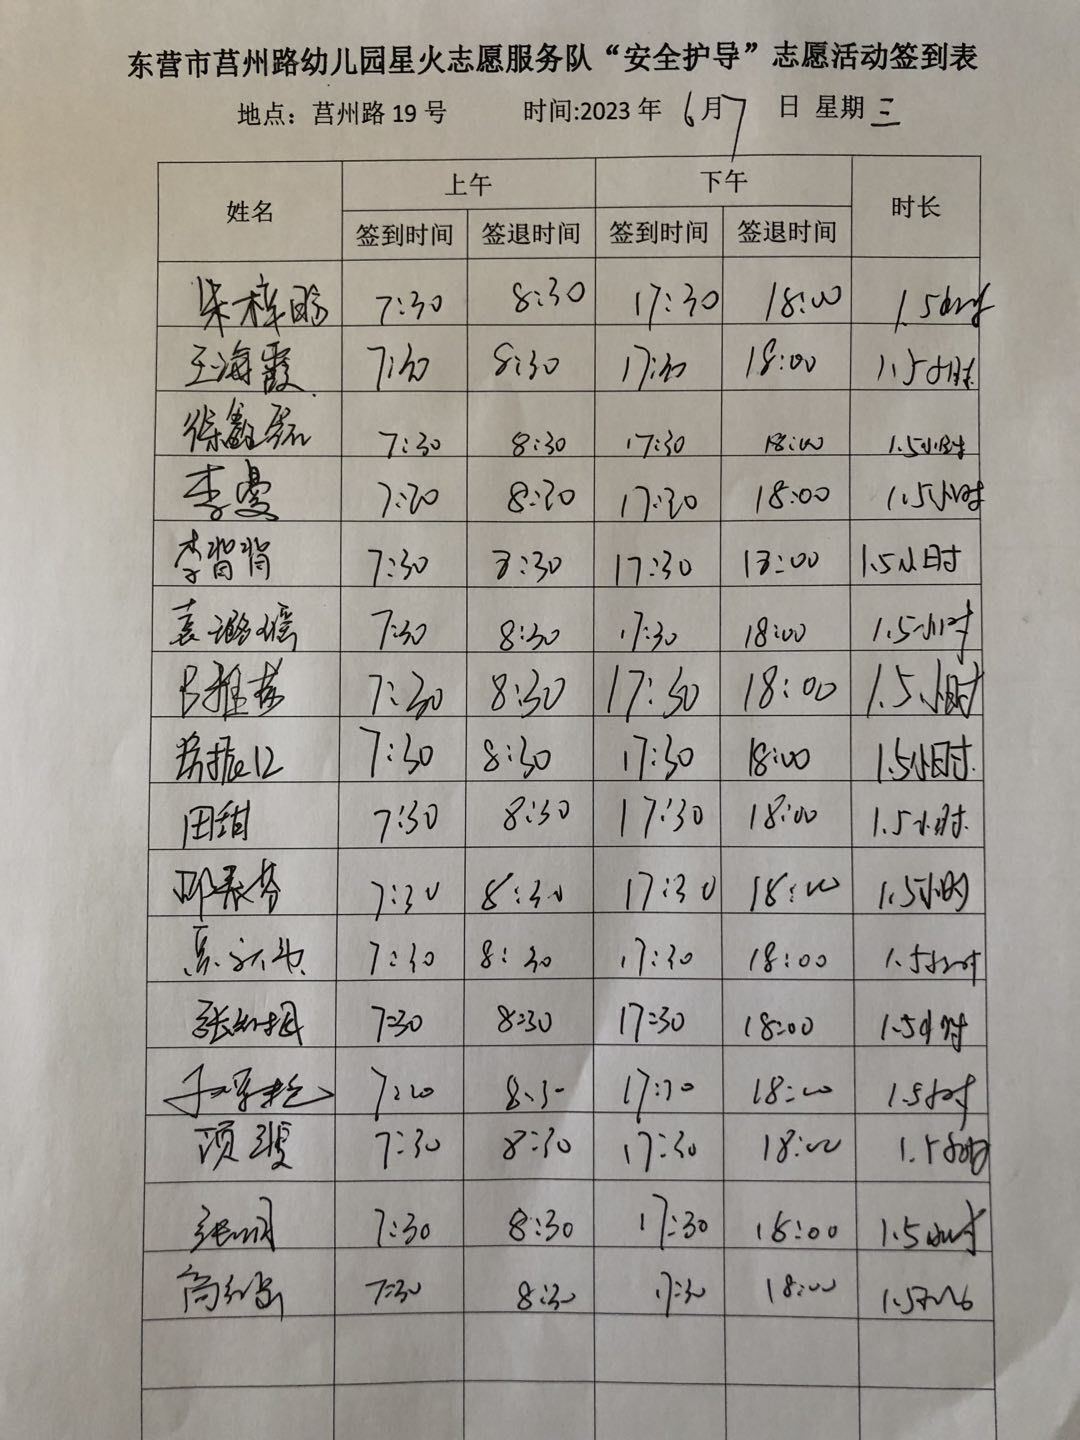 东营市莒州路幼儿园星火志愿服务队“安全护导”志愿活动签到表
地点：莒州路 19 号 时间:2023 年 6 月 7 日 星期 三
姓名 上午 下午 时长
签到时间 签退时间 签到时间 签退时间
朱梓 7:30 8:30 17:30 18:00 1.5小时
王海霞 7:30 8:30 17:30 18:00 1.5小时
徐鑫磊 7:30 8:30 17:30 18:00 1.5小时
李蔓 7:30 8:30 17:30 18:00 1.5小时
李 7:30 8:30 17:30 18:00 1.5小时
袁璐瑶 7:30 8:30 17:30 18:00 1.5小时
雅 7:30 8:30 17:30 18:00 1.5小时
振 7:30 8:30 17:30 18:00 1.5小时
田甜 7:30 8:30 17:30 18:00 1.5小时
7:30 8:30 17:30 18:00 1.5小时
7:30 8:30 17:30 18:00 1.5小时
张 7:30 8:30 17:30 18:00 1.5小时
7:30 8:30 17:30 18:00 1.5小时
项 7:30 8:30 17:30 18:00 1.5小时
张 7:30 8:30 17:30 18:00 1.5小时
高 7:30 8:30 17:30 18:00 1.5小时